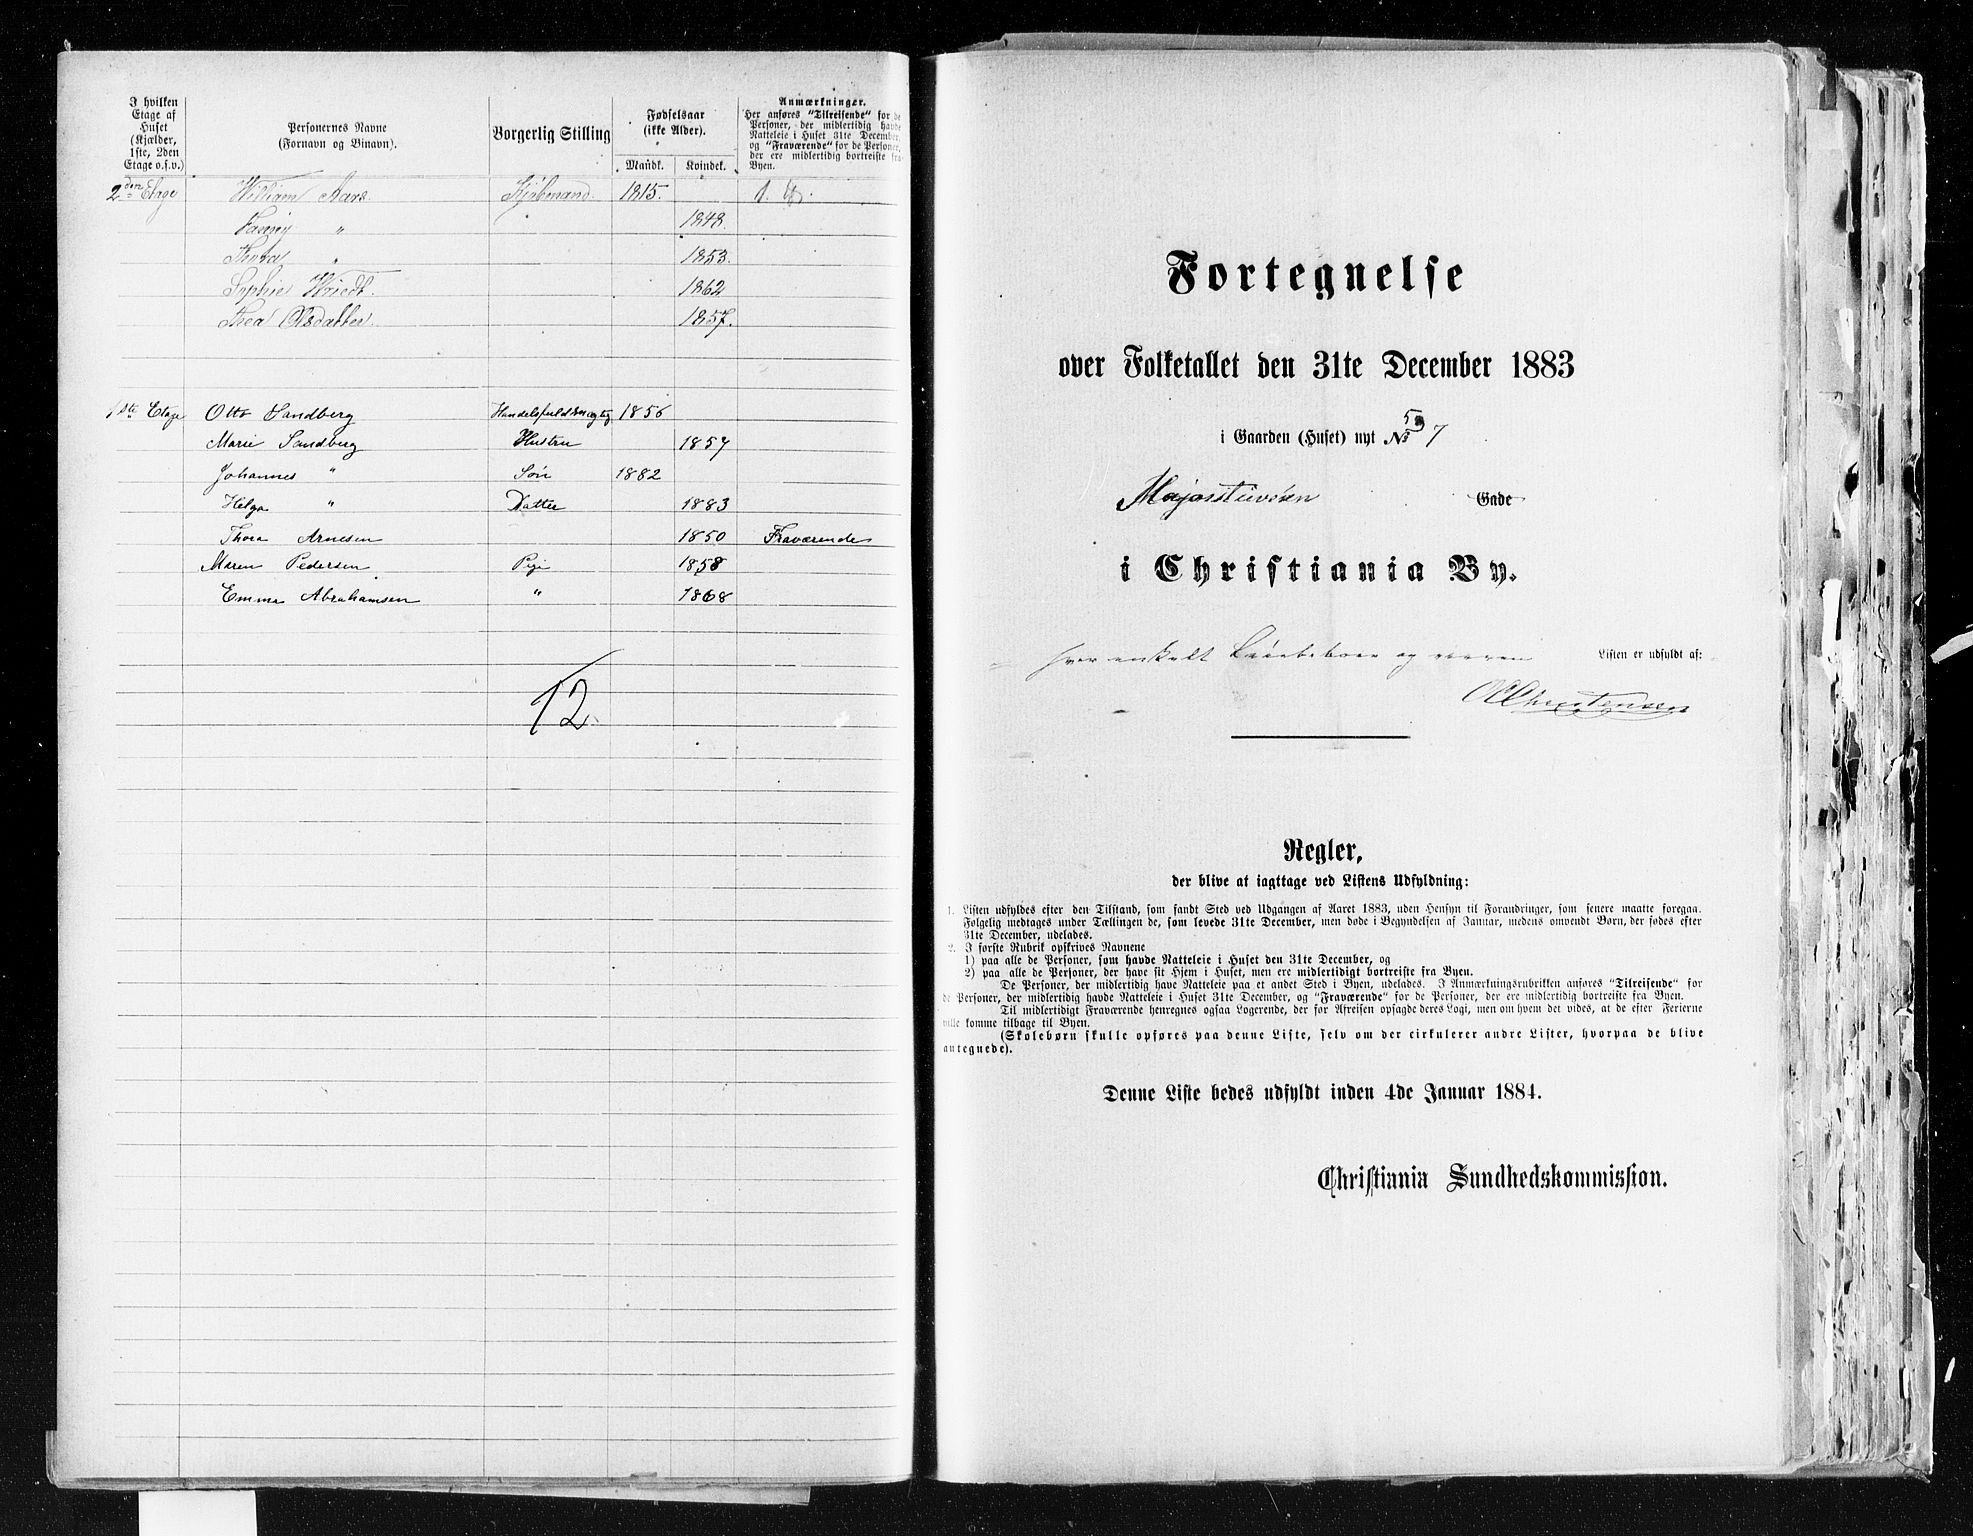 I hvilken
Etage af
Huset
(Kjælder,
1ste, 2den
Etage o.s.v.)
Personernes Navne
(Fornavn og Binavn).
Borgerlig Stilling
Fødselsaar
(ikke Alder).
Mandk.
Kvindek.
Anmærkninger.
Her anføres "Tilreisende" for de
Personer, der midlertidig havde
Natteleie i Huset 31te December,
og "Fraværende" for de Personer,
der ere midlertidig bortreiste fra
Byen.
2den Etage William Aars. Kjøbmand. 1815.
Fanny " 1848.
Thora " 1853.
Sophie Wriedt. 1862
Thea Olsdatter. 1857.
1ste Etage Otto Sandberg Handelsfuldmægtig 1856
Marie Sandberg Hustru 1857
Johannes " Søn 1882
Helga " Datter 1883
Thora Arnesen 1850 Fraværende
Maren Pedersen Pige 1858
Emma Abrahamsen " 1868
12.
Fortegnelse
over Folketallet den 31te December 1883
i Gaarden (Huset) nyt No 7
Majorstuveien Gade
i Christiania By.
hver enkelt og Listen er udfyldt af:
Christensen
Regler,
der blive at iagttage ved Listens Udfyldning:
1. Listen udfyldes efter den Tilstand, som fandt Sted ved Udgangen af Aaret 1883, uden Hensyn til Forandringer, som senere maatte foregaa.
Følgelig medtages under Tællingen de, som levede 31te December, men døde i Begyndelsen af Januar, medens omvendt Børn, der fødes efter
31te December, udelades.
2. I første Rubrik opskrives Navnene
1) paa alle de Personer, som havde Natteleie i Huset den 31te December, og
2) paa alle de Personer, der have sit Hjem i Huset, men ere midlertidigt bortreiste fra Byen.
De Personer, der midlertidig have Natteleie paa et andet Sted i Byen, udelades. I Anmærkningsrubrikken anføres "Tilreisende" for
de Personer, der midlertidig havde Natteleie i Huset 31te December, og "Fraværende" for de Personer, der ere midlertidig bortreiste fra Byen.
Til midlertidigt Fraværende henregnes ogsaa Logerende, der før Afreisen opsagde deres Logi, men om hvem det vides, at de efter Ferierne
ville komme tilbage til Byen.
(Skolebørn skulle opføres paa denne Liste, selv om der cirkulerer andre Lister, hvorpaa de blive
antegnede).
Denne Liste bedes udfyldt inden 4de Januar 1884.
Christiania Sundhedskommission.